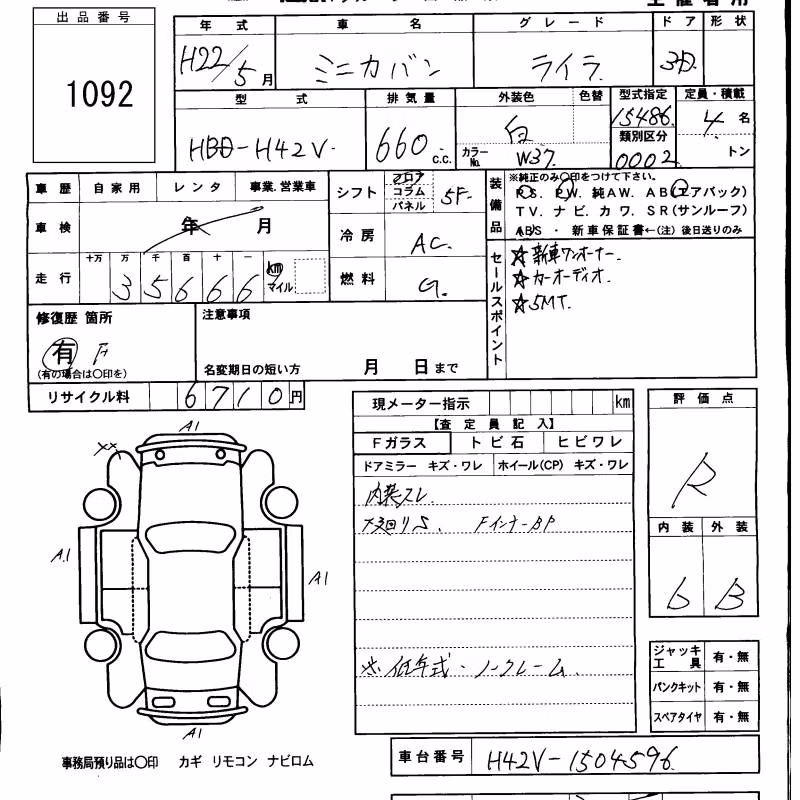 出品番号
1092
年式 車名 グレード ドア 形状
H22/5月 ミニカバン ライラ 3D.
型式 排気量 外装色 色替 型式指定 定員・積載
HBD-H42V. 660 c.c. 白 15486 4 名
カラーNo. W37. 類別区分 0002 トン
車歴 自家用 レンタ 事業.営業車
車検 年 月
走行 十万 万 千 百 十 一
35666 km マイル
シフト フロア コラム パネル 5F.
冷房 AC.
燃料 G.
装備品
※純正のみ○印をつけて下さい。
PS. PW. 純AW. AB(エアバック)
TV. ナビ. カワ. SR(サンルーフ)
ABS ・ 新車保証書←(注)後日送りのみ
セールスポイント
☆新車ワンオーナー.
☆カーオーディオ.
☆5MT.
修復歴 箇所
有 F
(有の場合は○印を)
注意事項
名変期日の短い方 月 日まで
リサイクル料 6710円
現メーター指示 km
【査定員記入】
Fガラス トビ石 ヒビワレ
ドアミラー キズ・ワレ ホイール(CP) キズ・ワレ
内装スレ.
下廻りS. FインナーBP
※低年式・ノークレーム.
評価点
R
内装 外装
b B
ジャッキ工具 有・無
パンクキット 有・無
スペアタイヤ 有・無
A1
XX
A1
A1
A1
事務局預り品は○印 カギ リモコン ナビロム
車台番号 H42V-1504596